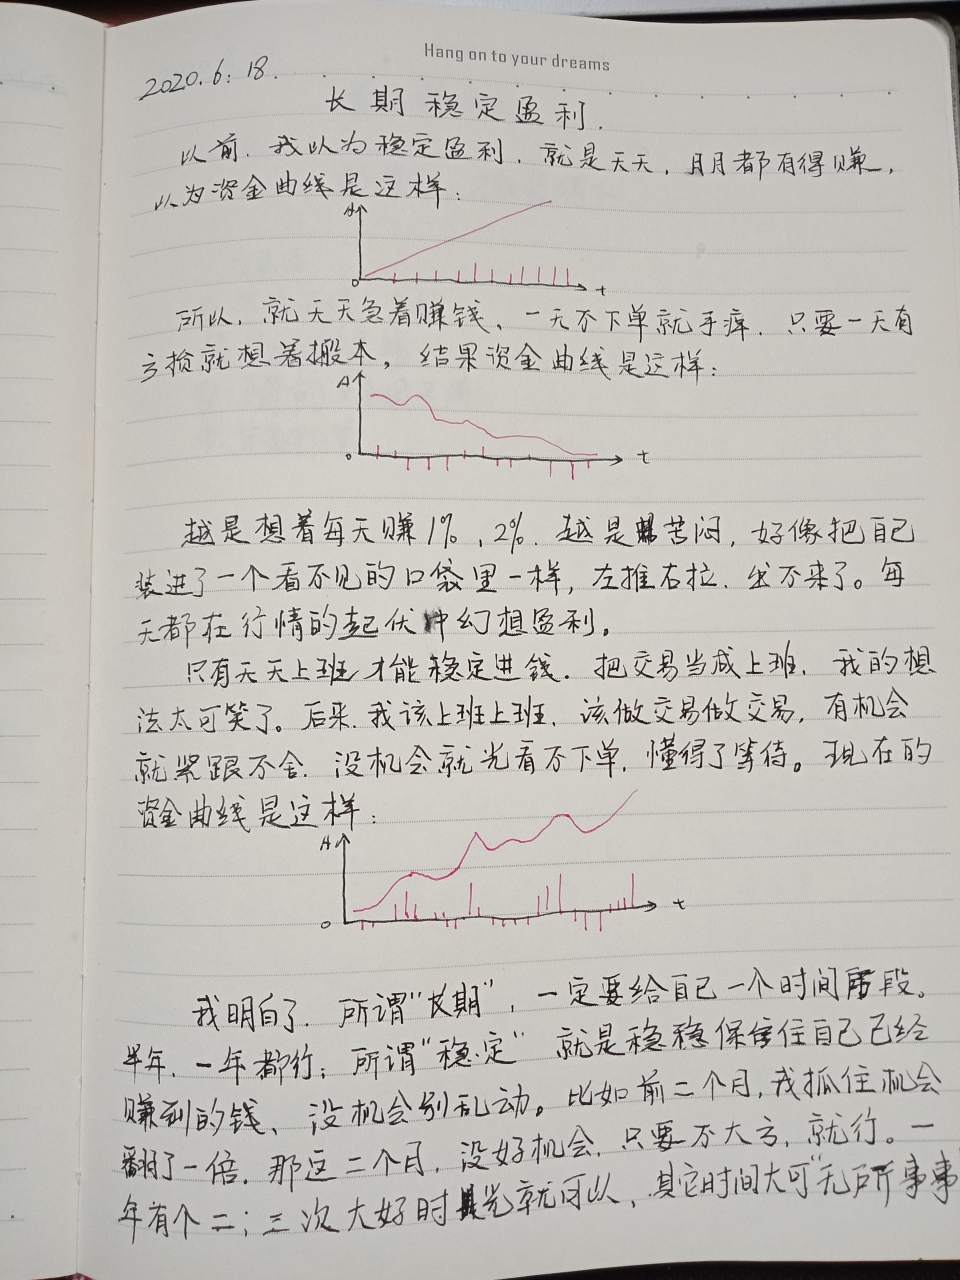 Hang on to your dreams
2020.6.18.
长期稳定盈利.
以前.我以为稳定盈利.就是天天,月月都有得赚,
以为资金曲线是这样:
A
0
t
所以,就天天急着赚钱、一天不下单就手痒.只要一天有
亏损就想着搬本,结果资金曲线是这样:
A
0
t
越是想着每天赚1%、2%.越是苦闷,好像把自己
装进了一个看不见的口袋里一样,左推右拉.出不来了。每
天都在行情的起伏中幻想盈利。
只有天天上班才能稳定进钱.把交易当成上班,我的想
法太可笑了。后来.我该上班上班.该做交易做交易,有机会
就紧跟不舍.没机会就光看不下单,懂得了等待。现在的
资金曲线是这样:
A
0
t
我明白了.所谓"长期",一定要给自己一个时间段。
半年、一年都行;所谓"稳定"就是稳稳保住自己已经
赚到的钱、没机会别乱动。比如前二个月,我抓住机会
翻了一倍.那这二个月.没好机会.只要不大亏,就行。一
年有个二;三次大好时光就可以,其它时间大可"无所事事"